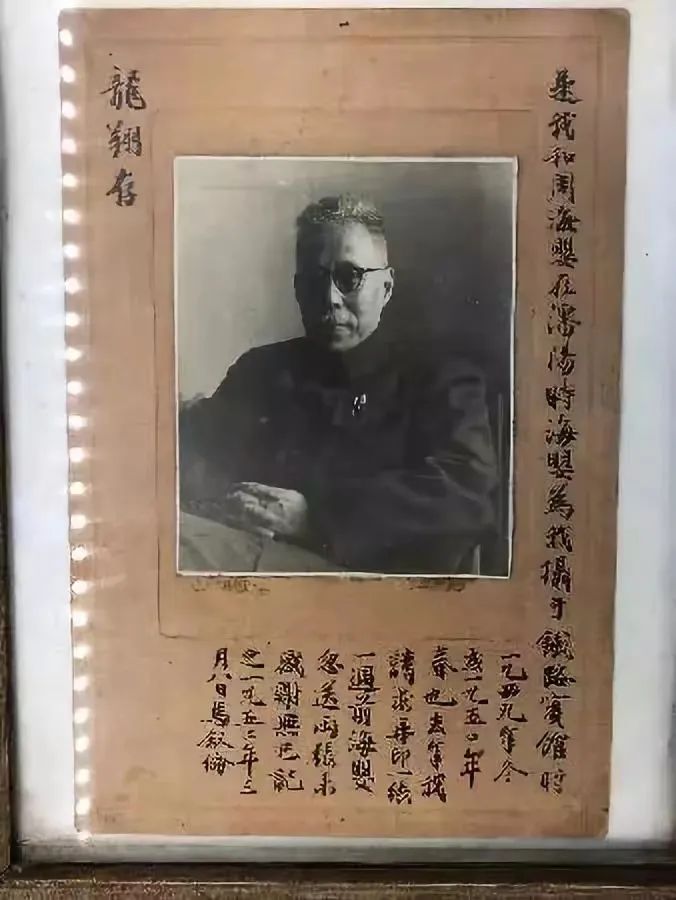 是我和周海嬰在瀋陽時海嬰為我攝于鐵路賓館時
一九四九年冬
或一九五〇年
春也去年我
請求再印一紙
一週前海嬰
忽送兩張來
感謝無已記
之一九五二年三
月八日馬叙倫
龍翔存